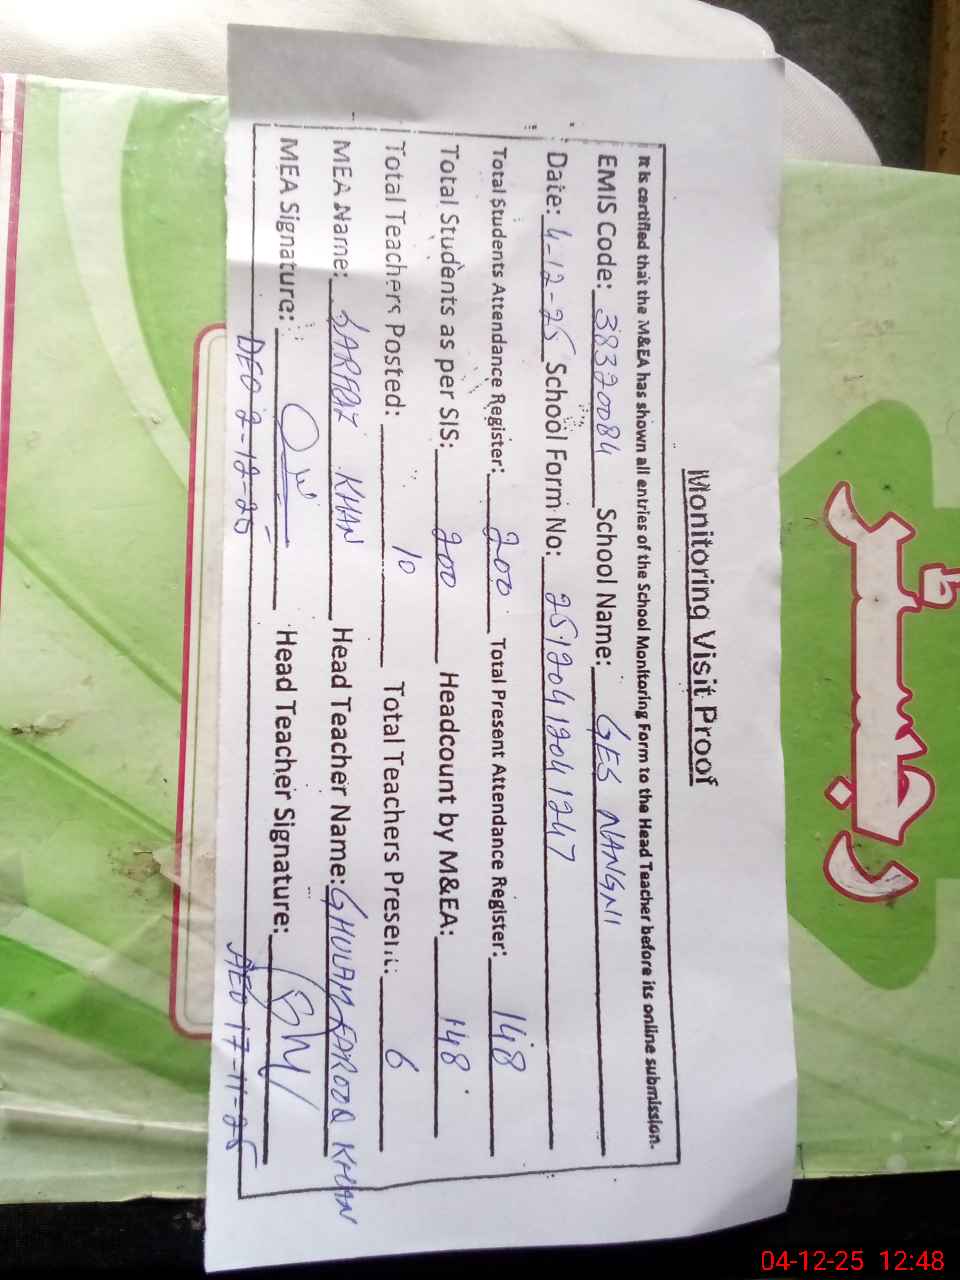 Monitoring Visit Proof
It is certified that the M&EA has shown all entries of the School Monitoring Form to the Head Teacher before its online submission.
EMIS Code: 38320084 School Name: GES NANGNI
Date: 4-12-25 School Form No: 25120412041247
Total Students Attendance Register: 200 Total Present Attendance Register: 148
Total Students as per SIS: 200 Headcount by M&EA: 148
Total Teachers Posted: 10 Total Teachers Present: 6
MEA Name: SARFRAZ KHAN Head Teacher Name: GHULAM FAROOQ KHAN
MEA Signature: Head Teacher Signature:
DEO 2-12-25 AEO 17-11-25
رجسٹر
04-12-25 12:48